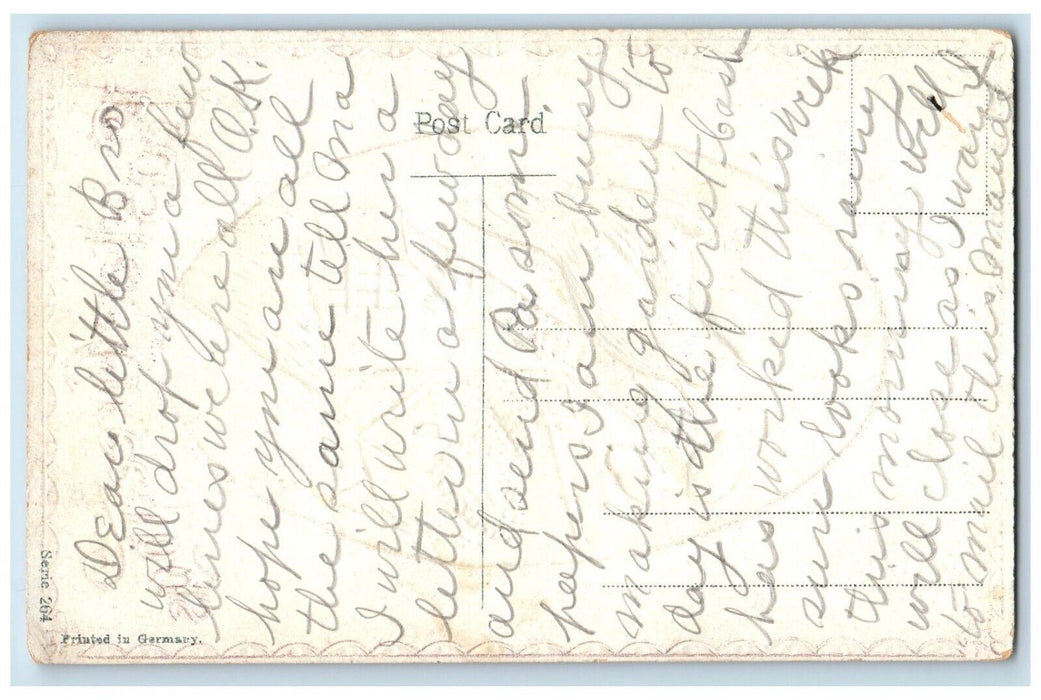 Post Card
Serie 264
Printed in Germany.
Dear little Bro
will drop you a few
lines we are all O.K.
hope you are all
the same tell Ona
I will write her a
letter in a few day
and send Pa some
papers, I am busy
making garden to
day is the first Cash
has worked this week
sure looks rainy
this morning well
will close as I want
to mail this Maud